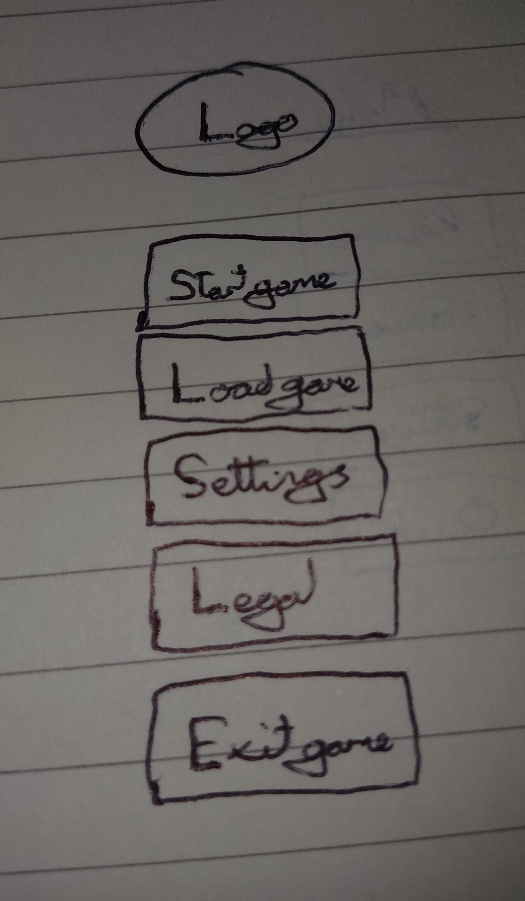 Logo
Start game
Load game
Settings
Legal
Exit game